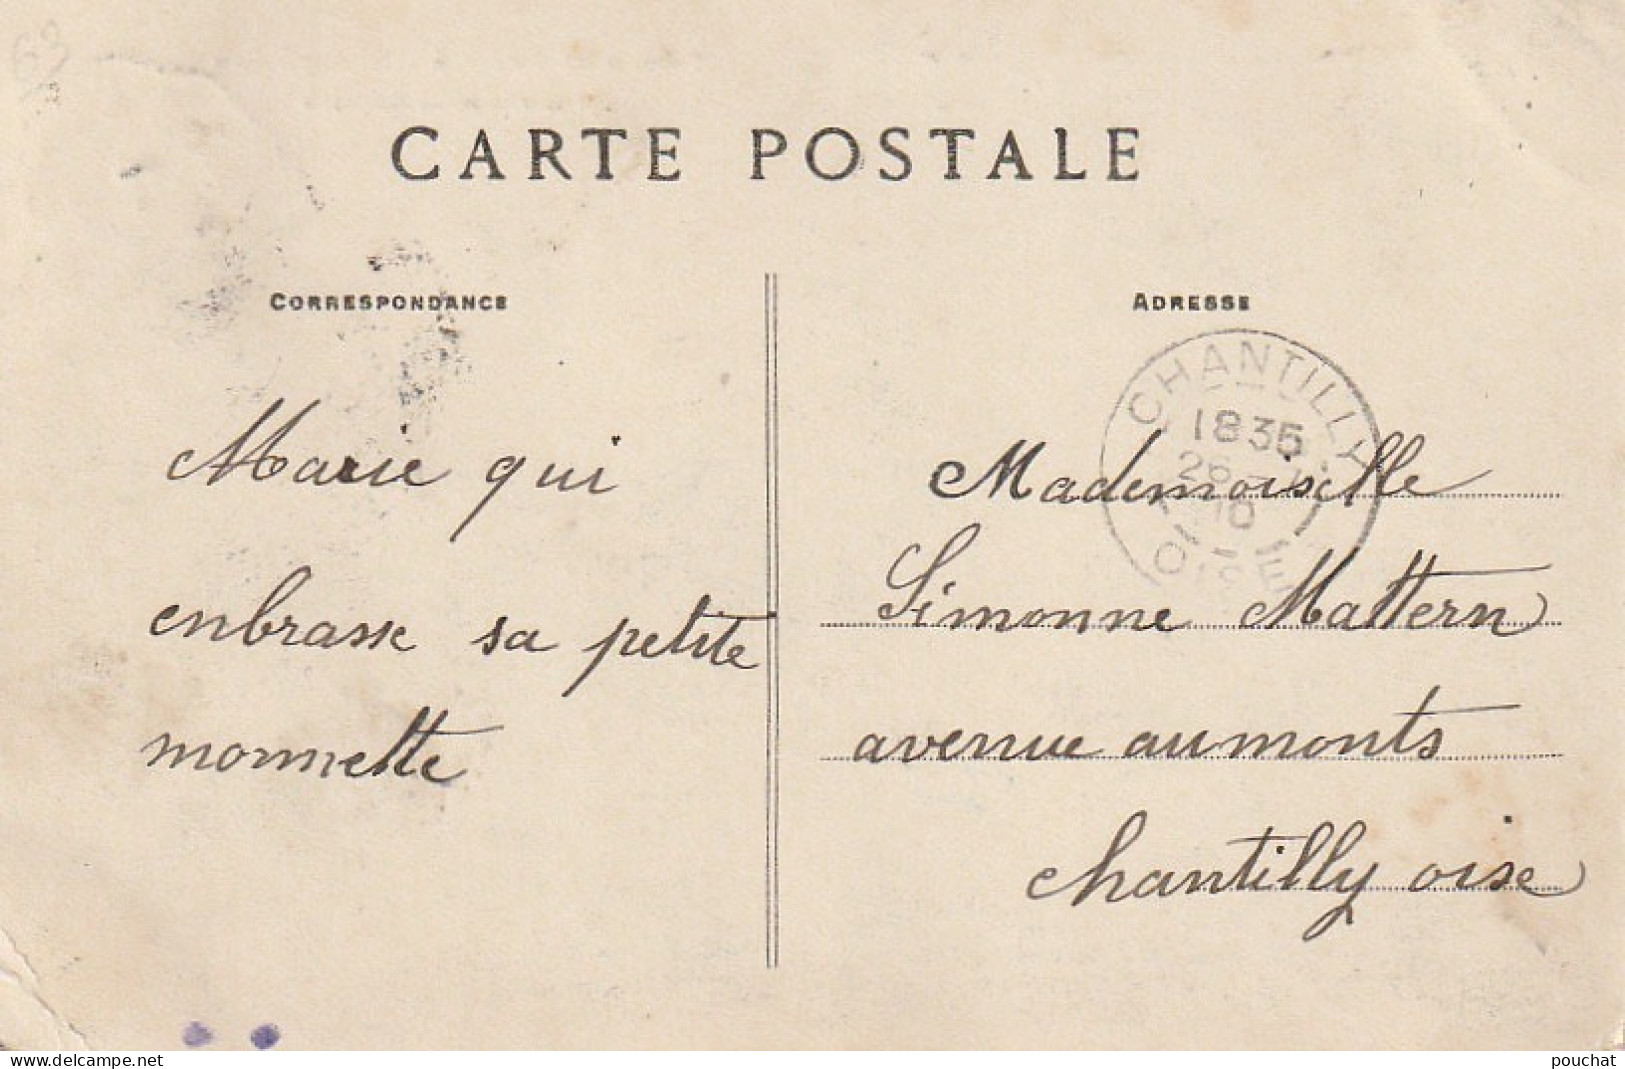 63
CARTE POSTALE
CORRESPONDANCE
Marie qui
enbrasse sa petite
monnette
ADRESSE
CHANTILLY
1835
26
10
OISE
Mademoiselle
Simonne Mattern
avenue aumonts
chantilly oise
www.delcampe.net
pouchat